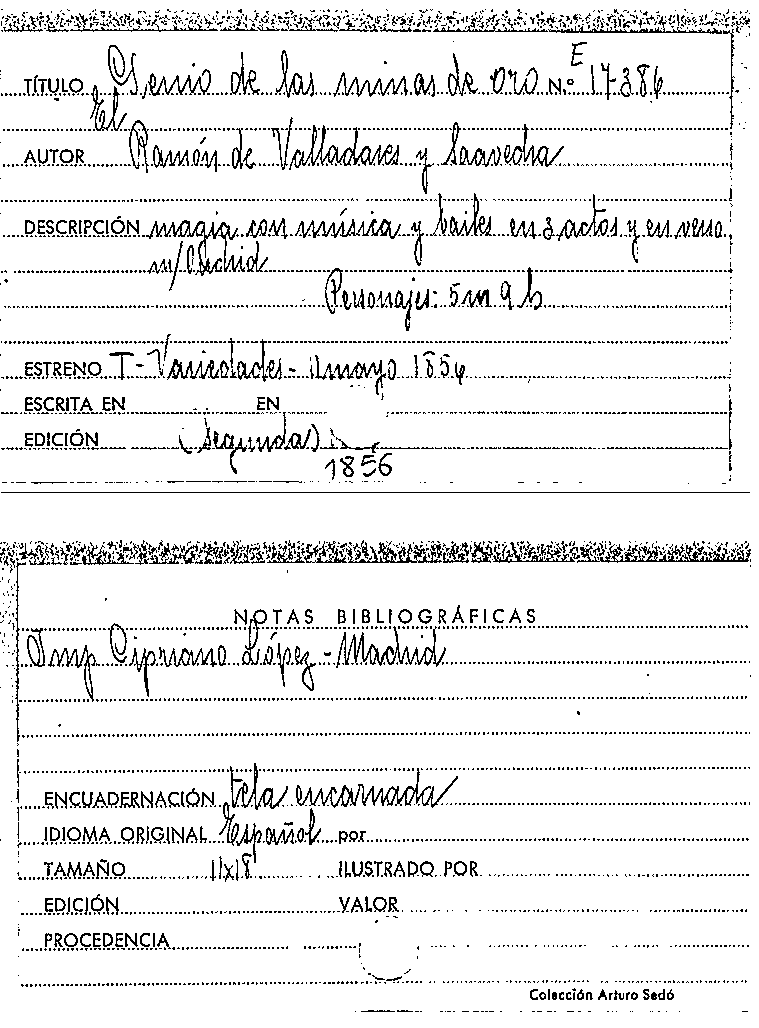 TÍTULO Genio de las minas de oro N.º E 17-386
El
AUTOR Ramón de Valladares y Saavedra
DESCRIPCIÓN magia con música y bailes en 3 actos y en verso
m/
Personajes: 5 m 9 h
ESTRENO T- Variedades - 11 mayo 1856
ESCRITA EN EN
EDICIÓN (segunda)
1856
NOTAS BIBLIOGRÁFICAS
Imp Cipriano López - Madrid
ENCUADERNACIÓN tela encarnada
IDIOMA ORIGINAL Español por
TAMAÑO 11x18 ILUSTRADO POR
EDICIÓN VALOR
PROCEDENCIA
Colección Arturo Sedó